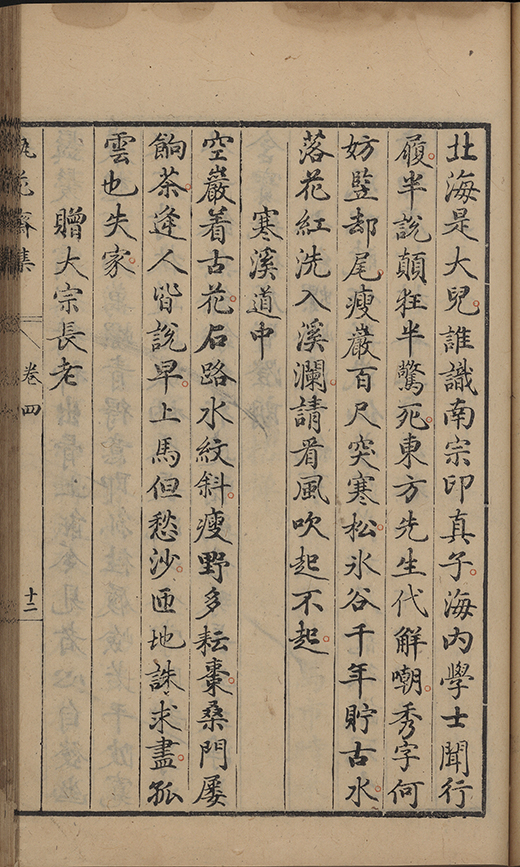 北海是大兒誰識南宗印真子海內學士聞行
履半說顛狂半驚死東方先生代解嘲秀字何
妨監却尾瘦巖百尺突寒松氷谷千年貯古水
落花紅洗入溪瀾請看風吹起不起
寒溪道中
空巖着古花石路水紋斜瘦野多耘棗桑門屡
餉茶逢人皆說早上馬但愁沙匝地誅求盡孤
雲也失家
贈大宗長老
花齋集
卷四
十二